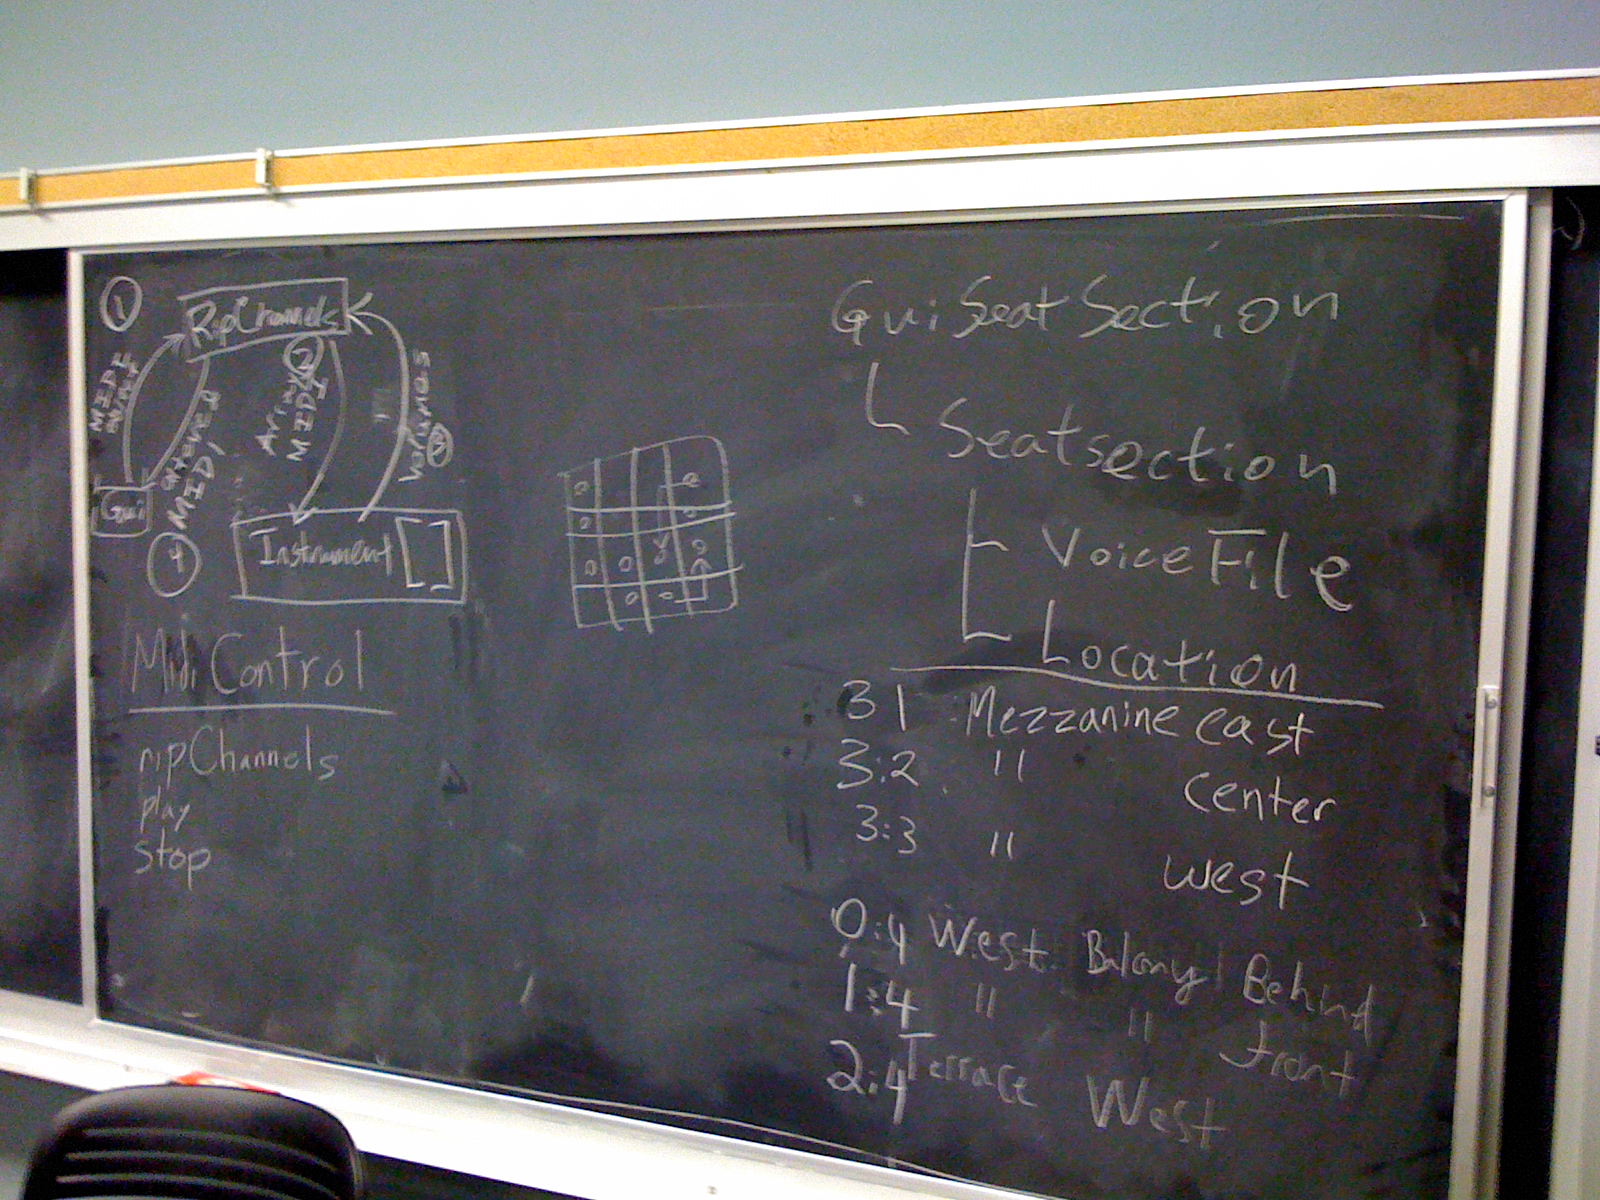 1
RipChannels
2
MIDI
Array
MIDI
Volumes
3
altered
MIDI
Gui
4
Instrument []
Midi Control
ripChannels
play
stop
Gui Seat Section
Seatsection
Voice File
Location
3 1 Mezzanine east
3:2 " center
3:3 " west
0:4 West Balcony Behind
1:4 " " front
2:4 Terrace West